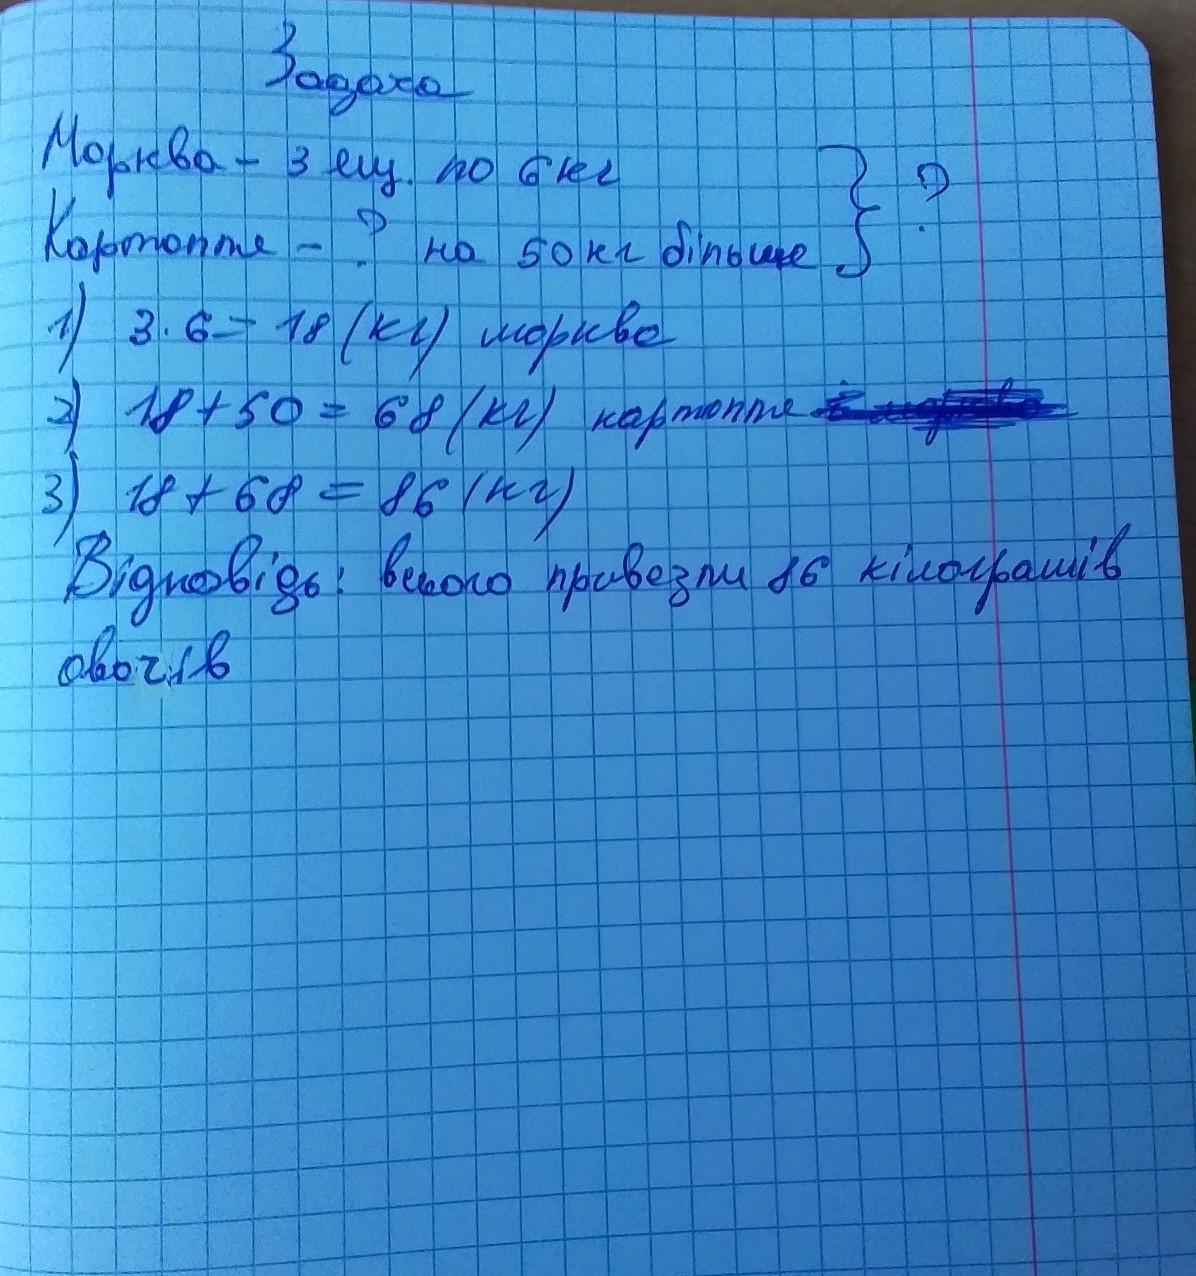 Задача
Морква - 3 ящ. по 6 кг
Картопля - ? на 50 кг більше } ?
1) 3 · 6 = 18 (кг) морква
2) 18 + 50 = 68 (кг) картопля
3) 18 + 68 = 86 (кг)
Відповідь: всього привезли 86 кілограмів
овочів